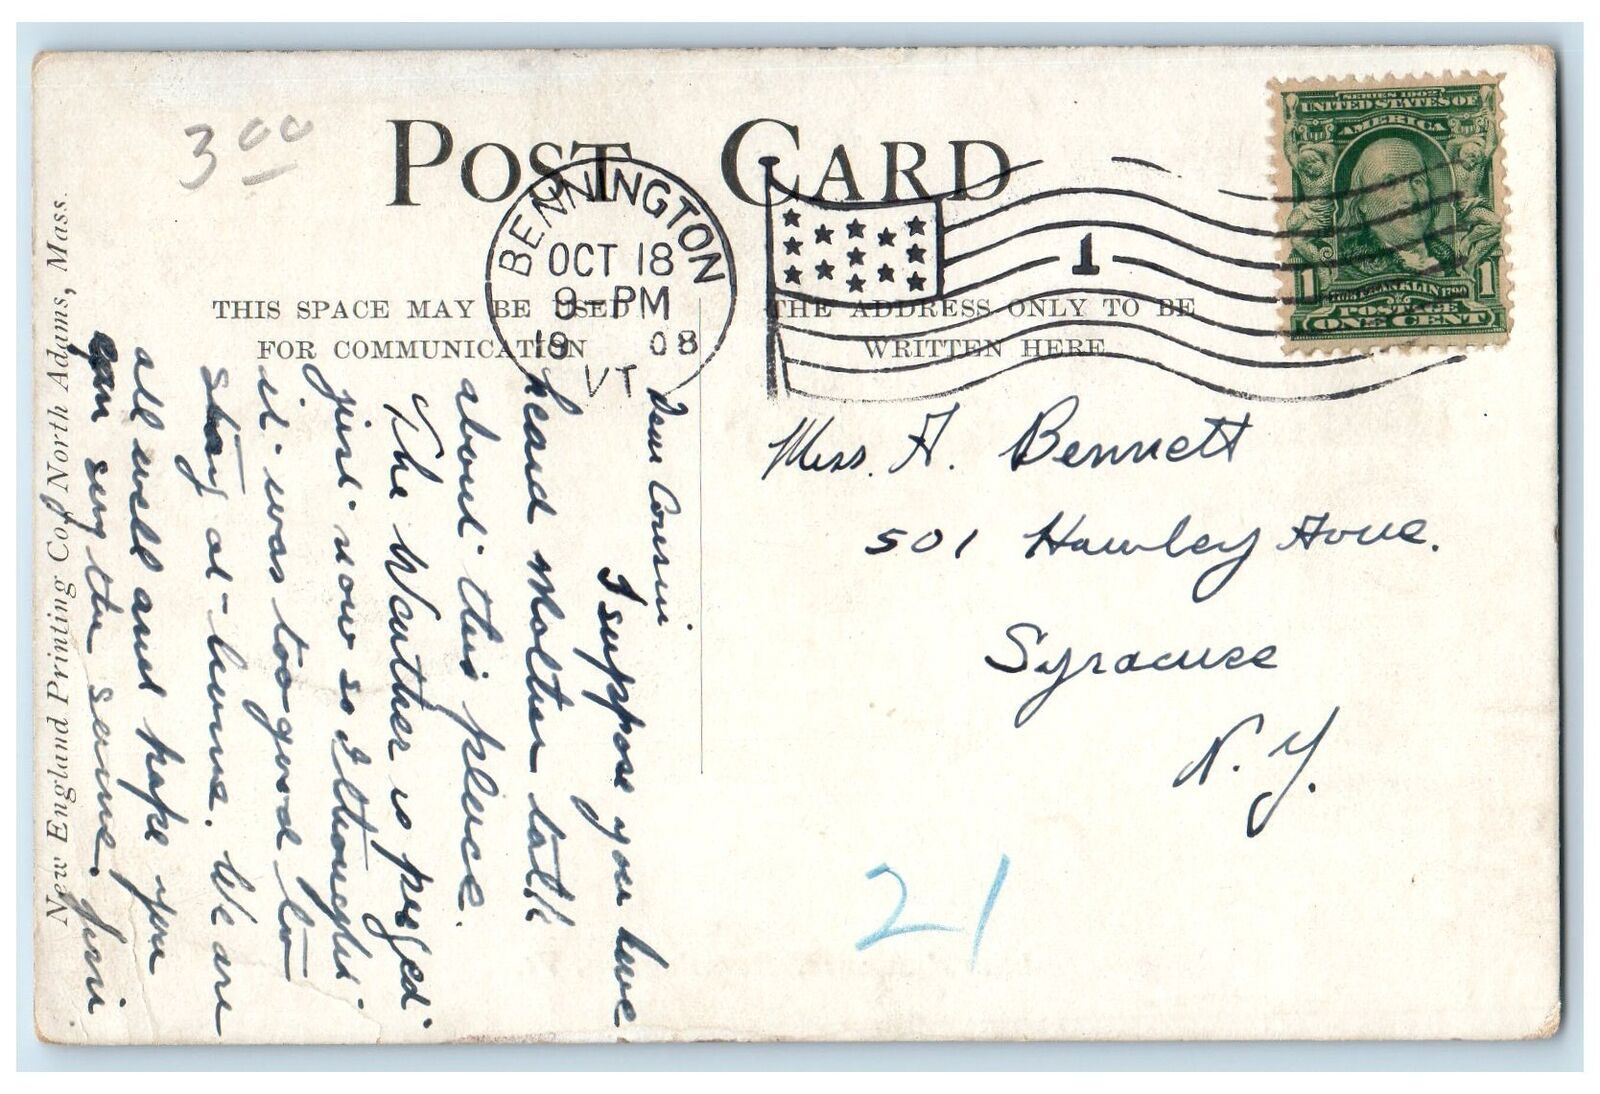 3 00
POST CARD
BENNINGTON
OCT 18
9-PM
19 08
VT
1
SERIES 1902
UNITED STATES OF
AMERICA
FRANKLIN
POSTAGE
1 1
ONE CENT
THIS SPACE MAY BE USED
FOR COMMUNICATION
THE ADDRESS ONLY TO BE
WRITTEN HERE
Dear Cousin
I suppose you have
heard Molten talk
about this place.
The Weather is
just now so I thought
it was too good to
stay at home. We are
all well and hope you
can say the same.
Miss. A. Bennett
501 Hawley Ave.
Syracuse
N.Y.
21
New England Printing Co., North Adams, Mass.